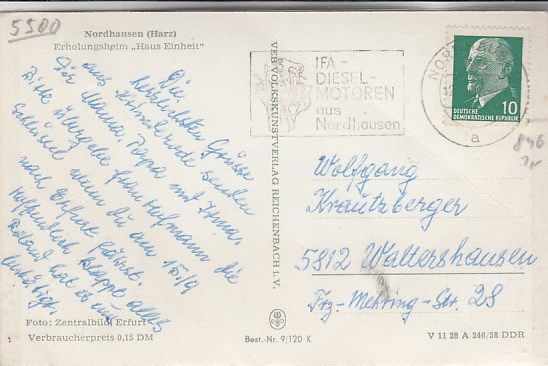 5500
Nordhausen (Harz)
Erholungsheim „Haus Einheit“
Die
herzlichsten Grüße
aus senden
Dir Mama, Papa und
Bitte Frau Hofmann die
Schlüssel wenn du am 15/9
nach Erfurt fährst.
Hoffentlich klappt alles
Roland hat es uns
bestätigt.
Foto: Zentralbild, Erfurt
Verbraucherpreis 0,15 DM
VEB VOLKSKUNSTVERLAG REICHENBACH i. V.
Best.-Nr. 9/120 K
IFA -
DIESEL-
MOTOREN
aus
Nordhausen
NO
a
10
DEUTSCHE
DEMOKRATISCHE REPUBLIK
846
Wolfgang
Krautzberger
5812 Waltershausen
Frz-Mehring-Str. 28
V 11 28 A 246/58 DDR